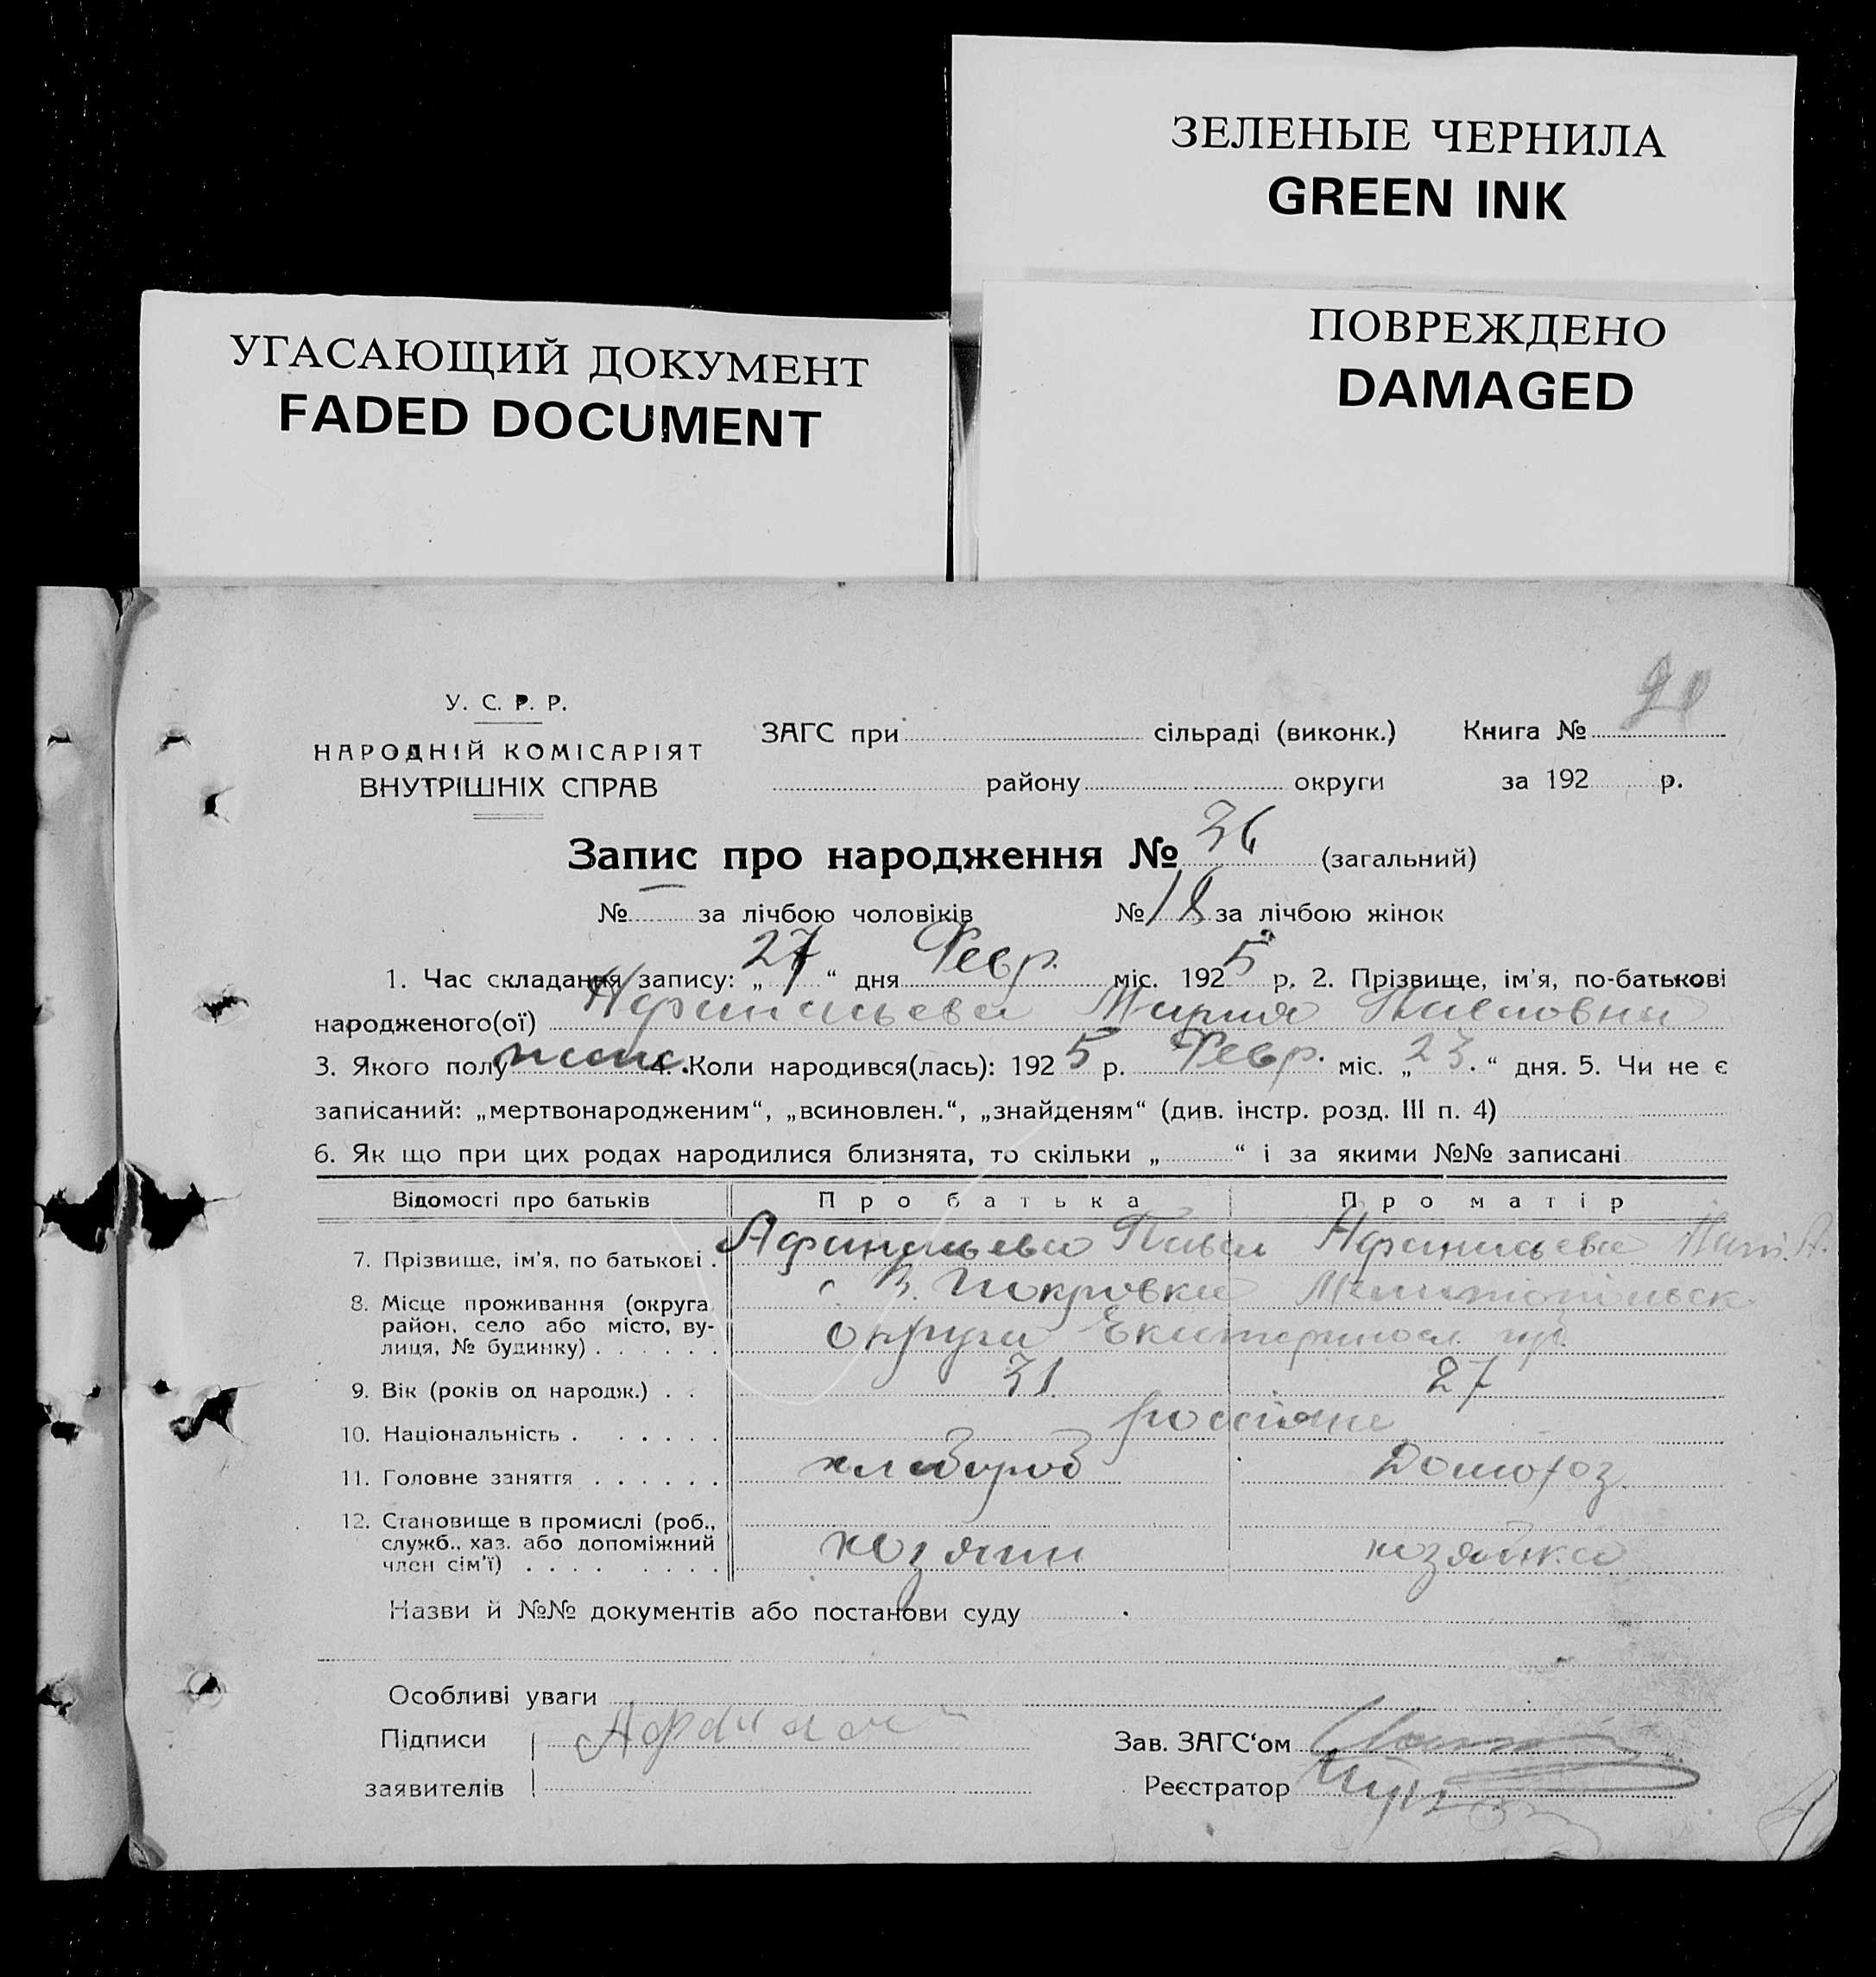 ЗЕЛЕНЫЕ ЧЕРНИЛА
GREEN INK
ПОВРЕЖДЕНО
DAMAGED
УГАСАЮЩИЙ ДОКУМЕНТ
FADED DOCUMENT
У. С. Р. Р.
НАРОДНІЙ КОМІСАРІЯТ
ВНУТРІШНІХ СПРАВ
ЗАГС при сільраді (виконк.) Книга №
району округи за 192 р.
Запис про народження № 36 (загальний)
№ — за лічбою чоловіків № 18 за лічбою жінок
1. Час складання запису: „27“ дня Февр. міс. 1925 р. 2. Прізвище, ім'я, по-батькові
народженого(ої) Афанасьева Мария Павловна
3. Якого полу женс. 4. Коли народився(лась): 1925 р. Февр. міс. „23.“ дня. 5. Чи не є
записаний: „мертвонародженим“, „всиновлен.“, „знайденям“ (див. інстр. розд. III п. 4)
6. Як що при цих родах народилися близнята, то скільки „ “ і за якими №№ записані
Відомості про батьків Про батька Про матір
7. Прізвище, ім'я, по батькові . Афанасьева Павел Афанасьева
8. Місце проживання (округа, район, село або місто, ву-
лиця, № будинку) . . . . . . с. В. Покровка Мелитопольск.
округа Екатериносл. губ.
9. Вік (років од народж.) . . 31 27
10. Національність . . . . . . россияне
11. Головне заняття . . . . . . хлебороб Домохоз.
12. Становище в промислі (роб.,
служб., хаз. або допоміжний
член сім'ї) . . . . . . . . хозяин хозяйка
Назви й №№ документів або постанови суду
Особливі уваги
Підписи
заявителів
Зав. ЗАГС‘ом
Реєстратор